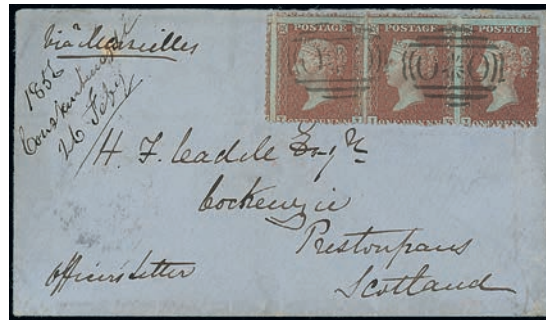 via Marseilles
1856
Constantinople
26 Feby
POSTAGE POSTAGE POSTAGE
O*O
H. F. Cadell Esqre
Cockenzie
Prestonpans
Scotland
Officers Letter